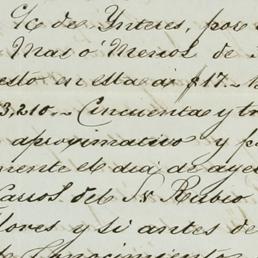 % de Ynteres, por
Mas ó Menos de
esto en esta á $17.
3,210.- Cincuenta y tr
aproximativo y p
mente el dia de aye
Carros del Sr Rubio
lores y si antes de
de Conocimiento